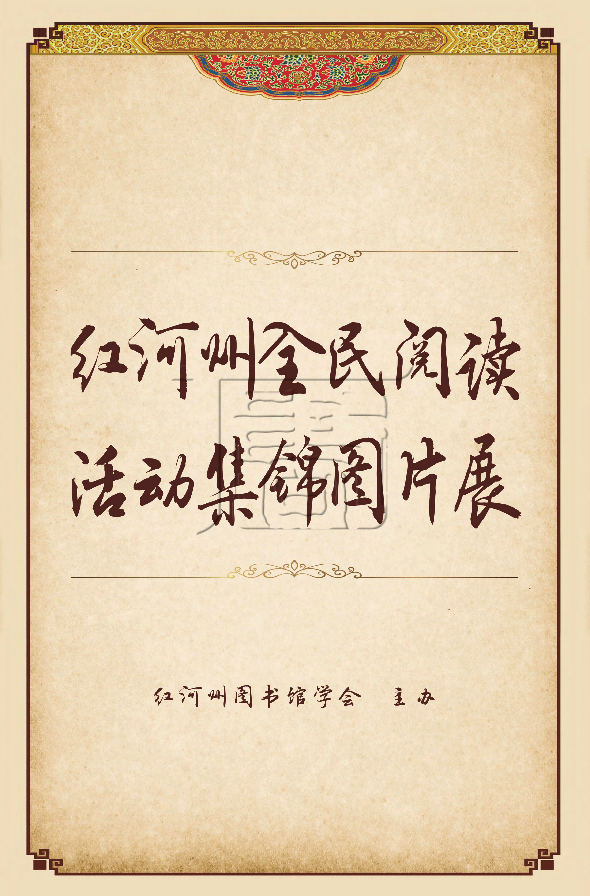 红河州全民阅读
活动集锦图片展
红河州图书馆学会 主办